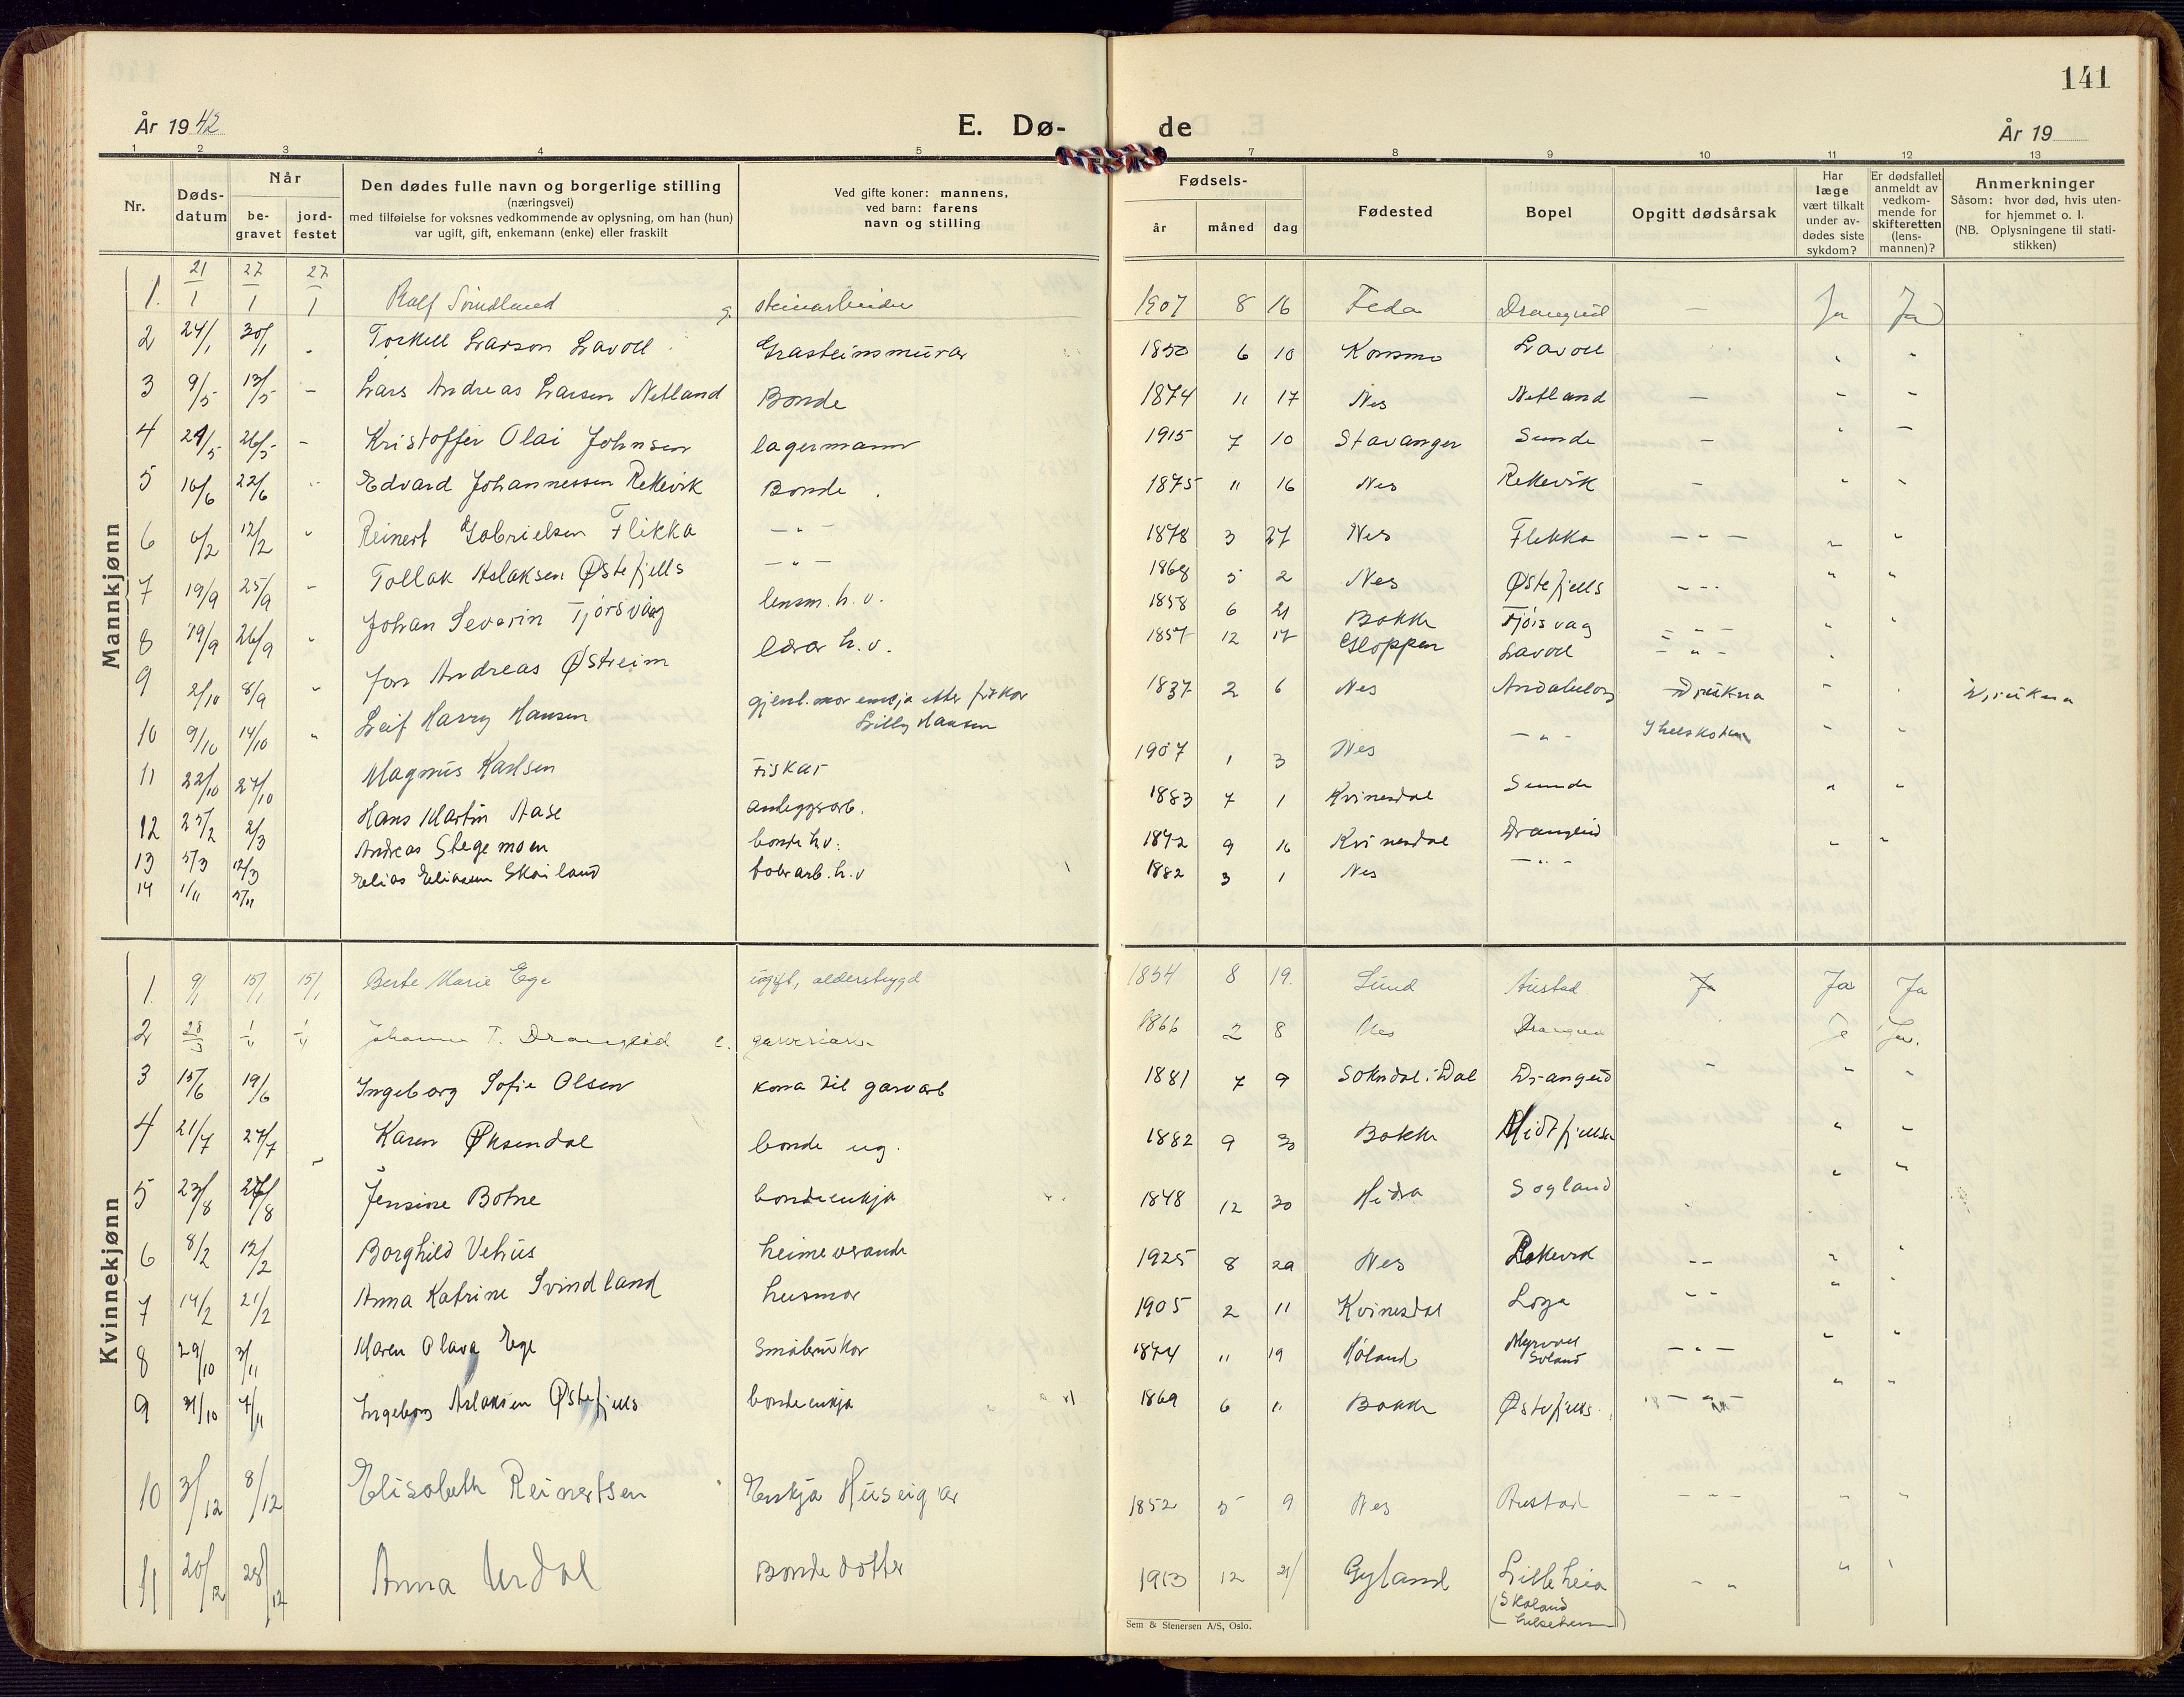 141
År 1942
E. Dø-
de
År 19
1 2 3 4 5 7 8 9 10 11 12 13
Nr.
Døds-
datum
Når
be-
gravet
jord-
festet
Den dødes fulle navn og borgerlige stilling
(næringsvei)
med tilføielse for voksnes vedkommende av oplysning, om han (hun)
var ugift, gift, enkemann (enke) eller fraskilt
Ved gifte koner: mannens,
ved barn: farens
navn og stilling
Fødsels-
år måned dag
Fødested
Bopel
Opgitt dødsårsak
Har
læge
vært tilkalt
under av-
dødes siste
sykdom?
Er dødsfallet
anmeldt av
vedkom-
mende for
skifteretten
(lens-
mannen)?
Anmerkninger
Såsom: hvor død, hvis uten-
for hjemmet o. l.
(NB. Oplysningene til stati-
stikken)
Mannkjønn
1. 21/1 27/1 27/1 Rolf Svindland g. steinarbeider 1907 8 16 Feda Drangeid — Ja Ja
2 24/1 30/1 Torkell Larson Lavoll Grasteinsmurar 1850 6 10 Konsmo Lavoll " "
3 9/5 13/5 – Lars Andreas Larsen Netland Bonde 1874 11 17 Nes Netland — " –
4 24/5 26/5 – Kristoffer Olai Johnsen lagermann 1915 7 10 Stavanger Sunde – " –
5 16/6 22/6 " Edvard Johannessen Rekevik Bonde 1875 11 16 Nes Rekevik – " "
6 6/2 12/2 " Reinert Gabrielsen Flikka – " – 1878 3 27 Nes Flikka – " – " "
7 19/9 25/9 – Tollak Aslaksen Østefjells – " – 1868 5 2 Nes Østefjells – " – " "
8 19/9 26/9 " Johan Severin Tjørsvåg lensm. h. v. 1858 6 21 Bakke Tjørsvåg – " – " "
9 2/10 8/9 " Jon Andreas Østreim lærar h. v. 1857 12 17 Gloppen Lavoll – " – "
10 9/10 14/10 " Leif Harry Hansen gjenl. mor enkja etter fiskar
Lilly Hansen 1937 2 6 Nes Andabeløy Drukna – Drukna
11 22/10 27/10 Magnus Karlsen Fiskar 1907 1 3 Nes – " – Ihelskoten " "
12 25/2 2/3 Hans Martin Aase anleggsarb. 1883 7 1 Kvinesdal Sunde " "
13 5/3 12/3 Andreas Stegemoen bonde h.v. 1872 9 16 Kvinesdal Drangeid " "
14 1/11 5/11 Elias Eliassen Skoiland fabr.arb. h. v 1882 3 1 Nes – " –
Kvinnekjønn
1. 9/1 15/1 15/1 Berte Marie Ege ugift, alderstrygd 1854 8 19. Lund Austad Ja Ja
2 28/3 1/4 1/4 Johanne T. Drangeid e. 1866 2 8 Nes Drangeid Ja Ja.
3 15/6 19/6 Ingeborg Sofie Olsen kona til garvarb 1881 7 9 Sokndal i Dal Drangeid – " "
4 21/7 27/7 Karen Øksendal bonde ug. 1882 9 30 Bakke Midtfjellså " "
5 23/8 28/8 Jensine Botne bondeenkja 1848 12 30 Hidra Søgland " "
6 8/2 12/2 Borghild Vetrus heimeverande 1925 8 29 Nes Rekevid – – " "
7 14/2 21/2 Anna Katrine Svindland husmor 1905 2 11 Kvinesdal Loga – – " "
8 29/10 3/11 Maren Olava Ege Småbrukar 1874 11 19 Høland – " – " "
9 31/10 7/11 Ingeborg Aslaksen Østefjells bondeenkja 1869 6 11 Bakke Østefjells. – " – " "
10 3/12 8/12 Elisabeth Reinertsen Enkja Huseigar 1852 5 9 Nes Austad – – – " "
11 20/12 28/12 Anna Urdal Bonde dotter 1913 12 21 Gyland Lilleheia – " " "
(Skoland
helseheim)
Sem & Stenersen A/S, Oslo.